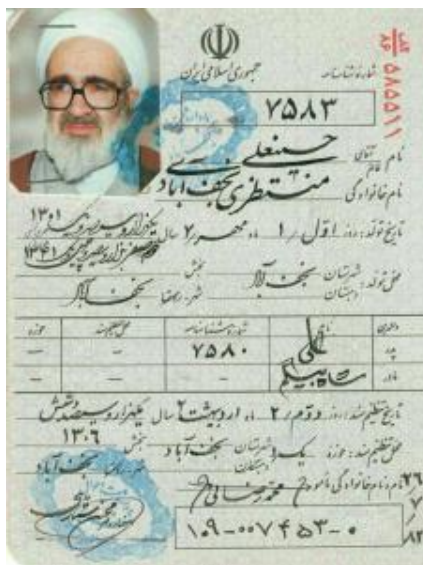 جمهوری اسلامی ایران
شماره شناسنامه
۷۵۸۳
۵۸۵۵۱۱
نام حسینعلی
نام خانوادگی منتظری نجف آبادی
تاریخ تولد: روز اول / ۱ ماه مهر / ۷ سال یکهزار و سیصد و یک ۱۳۰۱
۱۳۴۱
محل تولد: شهرستان نجف آباد بخش
دهستان شهر
والدین نام شماره شناسنامه محل تنظیم سند حوزه
پدر علی ۷۵۸۰ – –
مادر شاه بیگم – – –
تاریخ تنظیم سند: روز دوم / ۲ ماه اردیبهشت / ۲ سال یکهزار و سیصد و شش
۱۳۰۶
محل تنظیم سند: حوزه یک شهرستان نجف آباد بخش
دهستان شهر نجف آباد
نام و نام خانوادگی مامور
۱۰۹-۰۰۷۴۵۳-۰